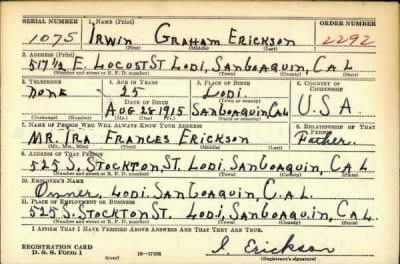 SERIAL NUMBER 1. NAME (Print) ORDER NUMBER
1075 IRWIN GRAHAM ERICKSON 2292
(First) (Middle) (Last)
2. ADDRESS (Print)
517 1/2 E. LOCUST ST. LODI, SAN JOAQUIN, CAL
(Number and street or R. F. D. number) (Town) (County) (State)
3. TELEPHONE 4. AGE IN YEARS 5. PLACE OF BIRTH 6. COUNTRY OF CITIZENSHIP
NONE 25 LODI
DATE OF BIRTH (Town or county)
AUG 25 1915 SAN JOAQUIN, CAL U.S.A
(Exchange) (Number) (Mo.) (Day) (Yr.) (State or country)
7. NAME OF PERSON WHO WILL ALWAYS KNOW YOUR ADDRESS 8. RELATIONSHIP OF THAT PERSON
MR. IRA FRANCES ERICKSON Father
(Mr., Mrs., Miss) (First) (Middle) (Last)
9. ADDRESS OF THAT PERSON
525 S. STOCKTON ST. LODI, SAN JOAQUIN, CAL
(Number and street or R. F. D. number) (Town) (County) (State)
10. EMPLOYER'S NAME
Owner, LODI. SAN JOAQUIN, CAL.
11. PLACE OF EMPLOYMENT OR BUSINESS
525 S. STOCKTON ST. LODI, SAN JOAQUIN, CAL.
(Number and street or R. F. D. number) (Town) (County) (State)
I AFFIRM THAT I HAVE VERIFIED ABOVE ANSWERS AND THAT THEY ARE TRUE.
REGISTRATION CARD
D. S. S. Form 1 (over) 16—17105 I. Erickson
(Registrant's signature)